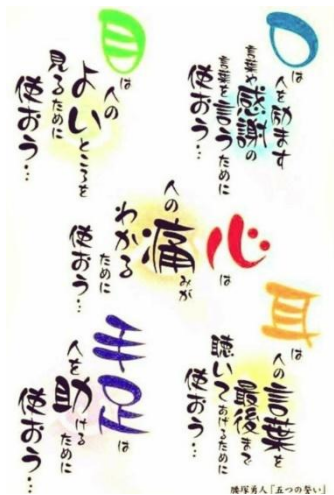 口は
人を励ます
言葉や感謝の
言葉を言うために
使おう…
目は
人の
よいところを
見るために
使おう…
心は
人の痛みが
わかる
ために
使おう…
耳は
人の言葉を
最後まで
聴いてあげるために
使おう…
手足は
人を助けるために
使おう…
腰塚勇人「五つの誓い」